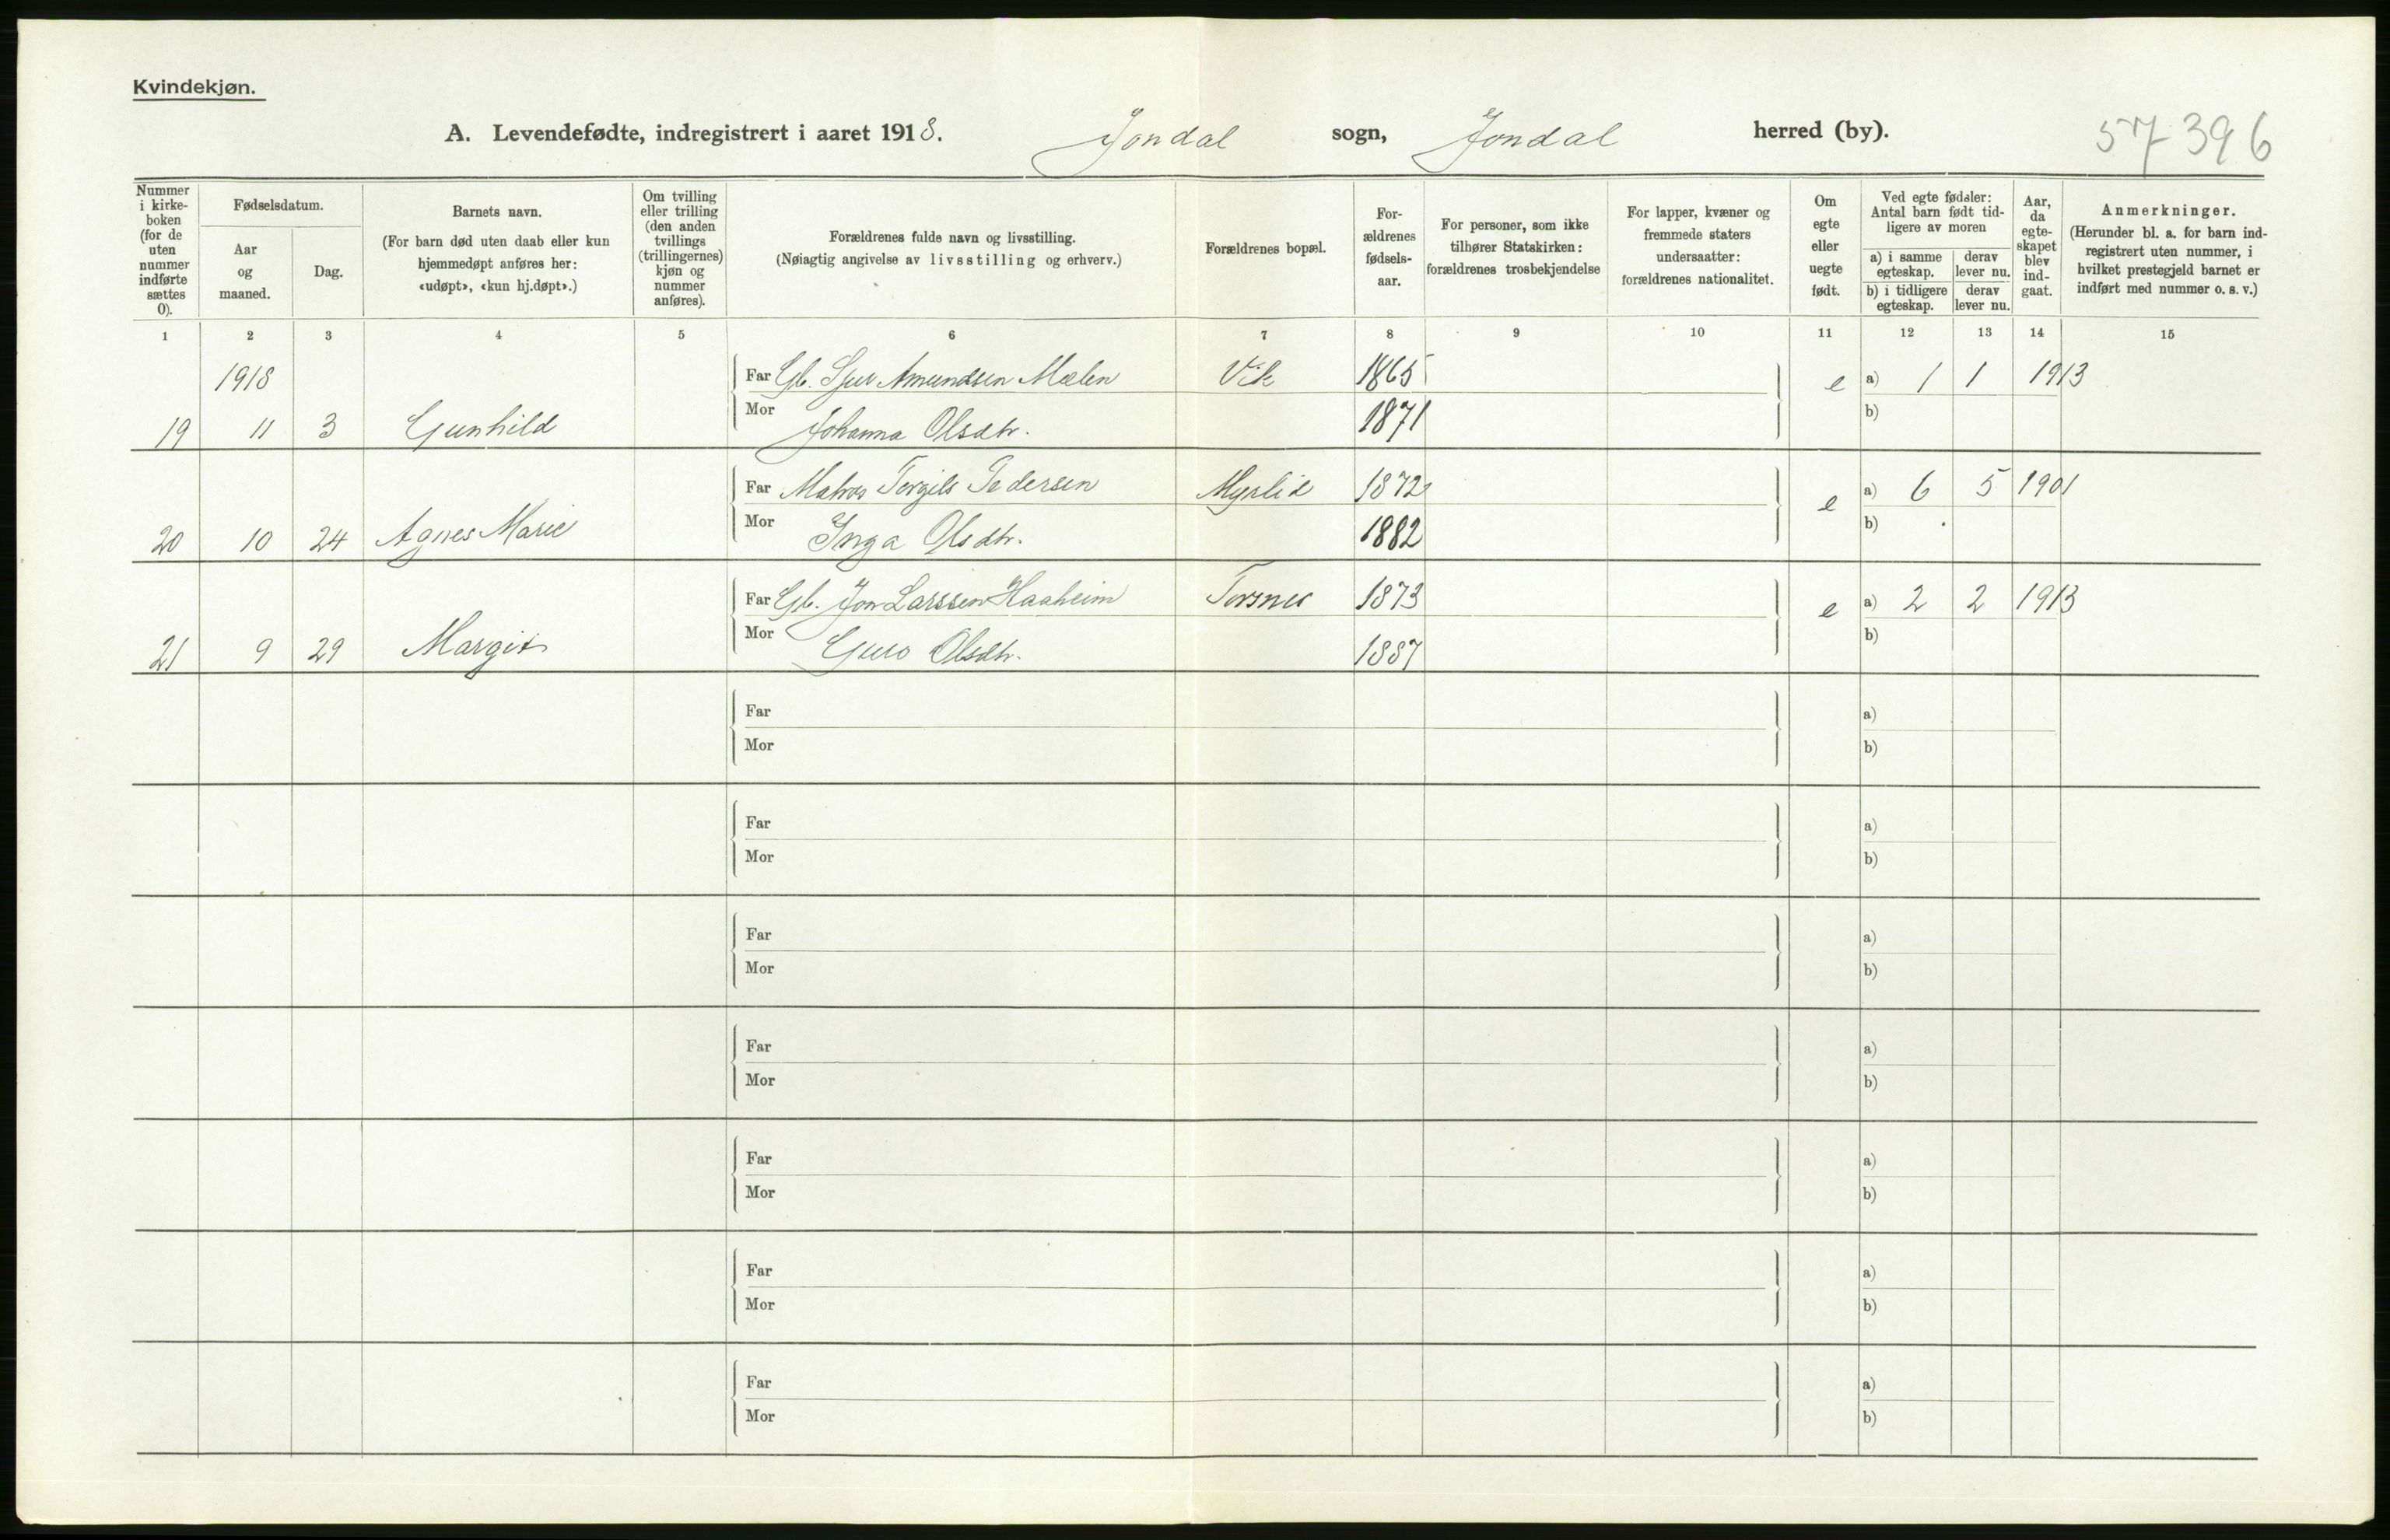 Kvindekjøn.
A. Levendefødte, indregistrert i aaret 1918. Jondal sogn, Jondal herred (by). 57396
Nummer i kirke-boken (for de uten nummer indførte sættes 0).
Fødselsdatum.
Aar og maaned.
Dag.
Barnets navn.
(For barn død uten daab eller kun hjemmedøpt anføres her: «udøpt», «kun hj.døpt».)
Om tvilling eller trilling (den anden tvillings (trillingernes) kjøn og nummer anføres).
Forældrenes fulde navn og livsstilling.
(Nøiagtig angivelse av livsstilling og erhverv.)
Forældrenes bopæl.
For-ældrenes fødsels-aar.
For personer, som ikke tilhører Statskirken: forældrenes trosbekjendelse
For lapper, kvæner og fremmede staters undersaatter: forældrenes nationalitet.
Om egte eller uegte født.
Ved egte fødsler: Antal barn født tid-ligere av moren
a) i samme egteskap.
derav lever nu.
b) i tidligere egteskap.
derav lever nu.
Aar, da egte-skapet blev ind-gaat.
Anmerkninger.
(Herunder bl. a. for barn ind-registrert uten nummer, i hvilket prestegjeld barnet er indført med nummer o. s. v.)
1 2 3 4 5 6 7 8 9 10 11 12 13 14 15
1918 Far Gb. Sjur Amundsen Mælen Vik 1865 e a) 1 1 1913
19 11 3 Gunhild Mor Johanna Olsdtr. 1871 b)
Far Matros Torgils Pedersen Myrlid 1872 e a) 6 5 1901
20 10 24 Agnes Marie Mor Inga Olsdtr. 1882 b)
Far Gb. Jon Larssen Haaheim Torsnes 1873 e a) 2 2 1913
21 9 29 Margit Mor Guro Olsdtr. 1887 b)
Far a)
Mor b)
Far a)
Mor b)
Far a)
Mor b)
Far a)
Mor b)
Far a)
Mor b)
Far a)
Mor b)
Far a)
Mor b)